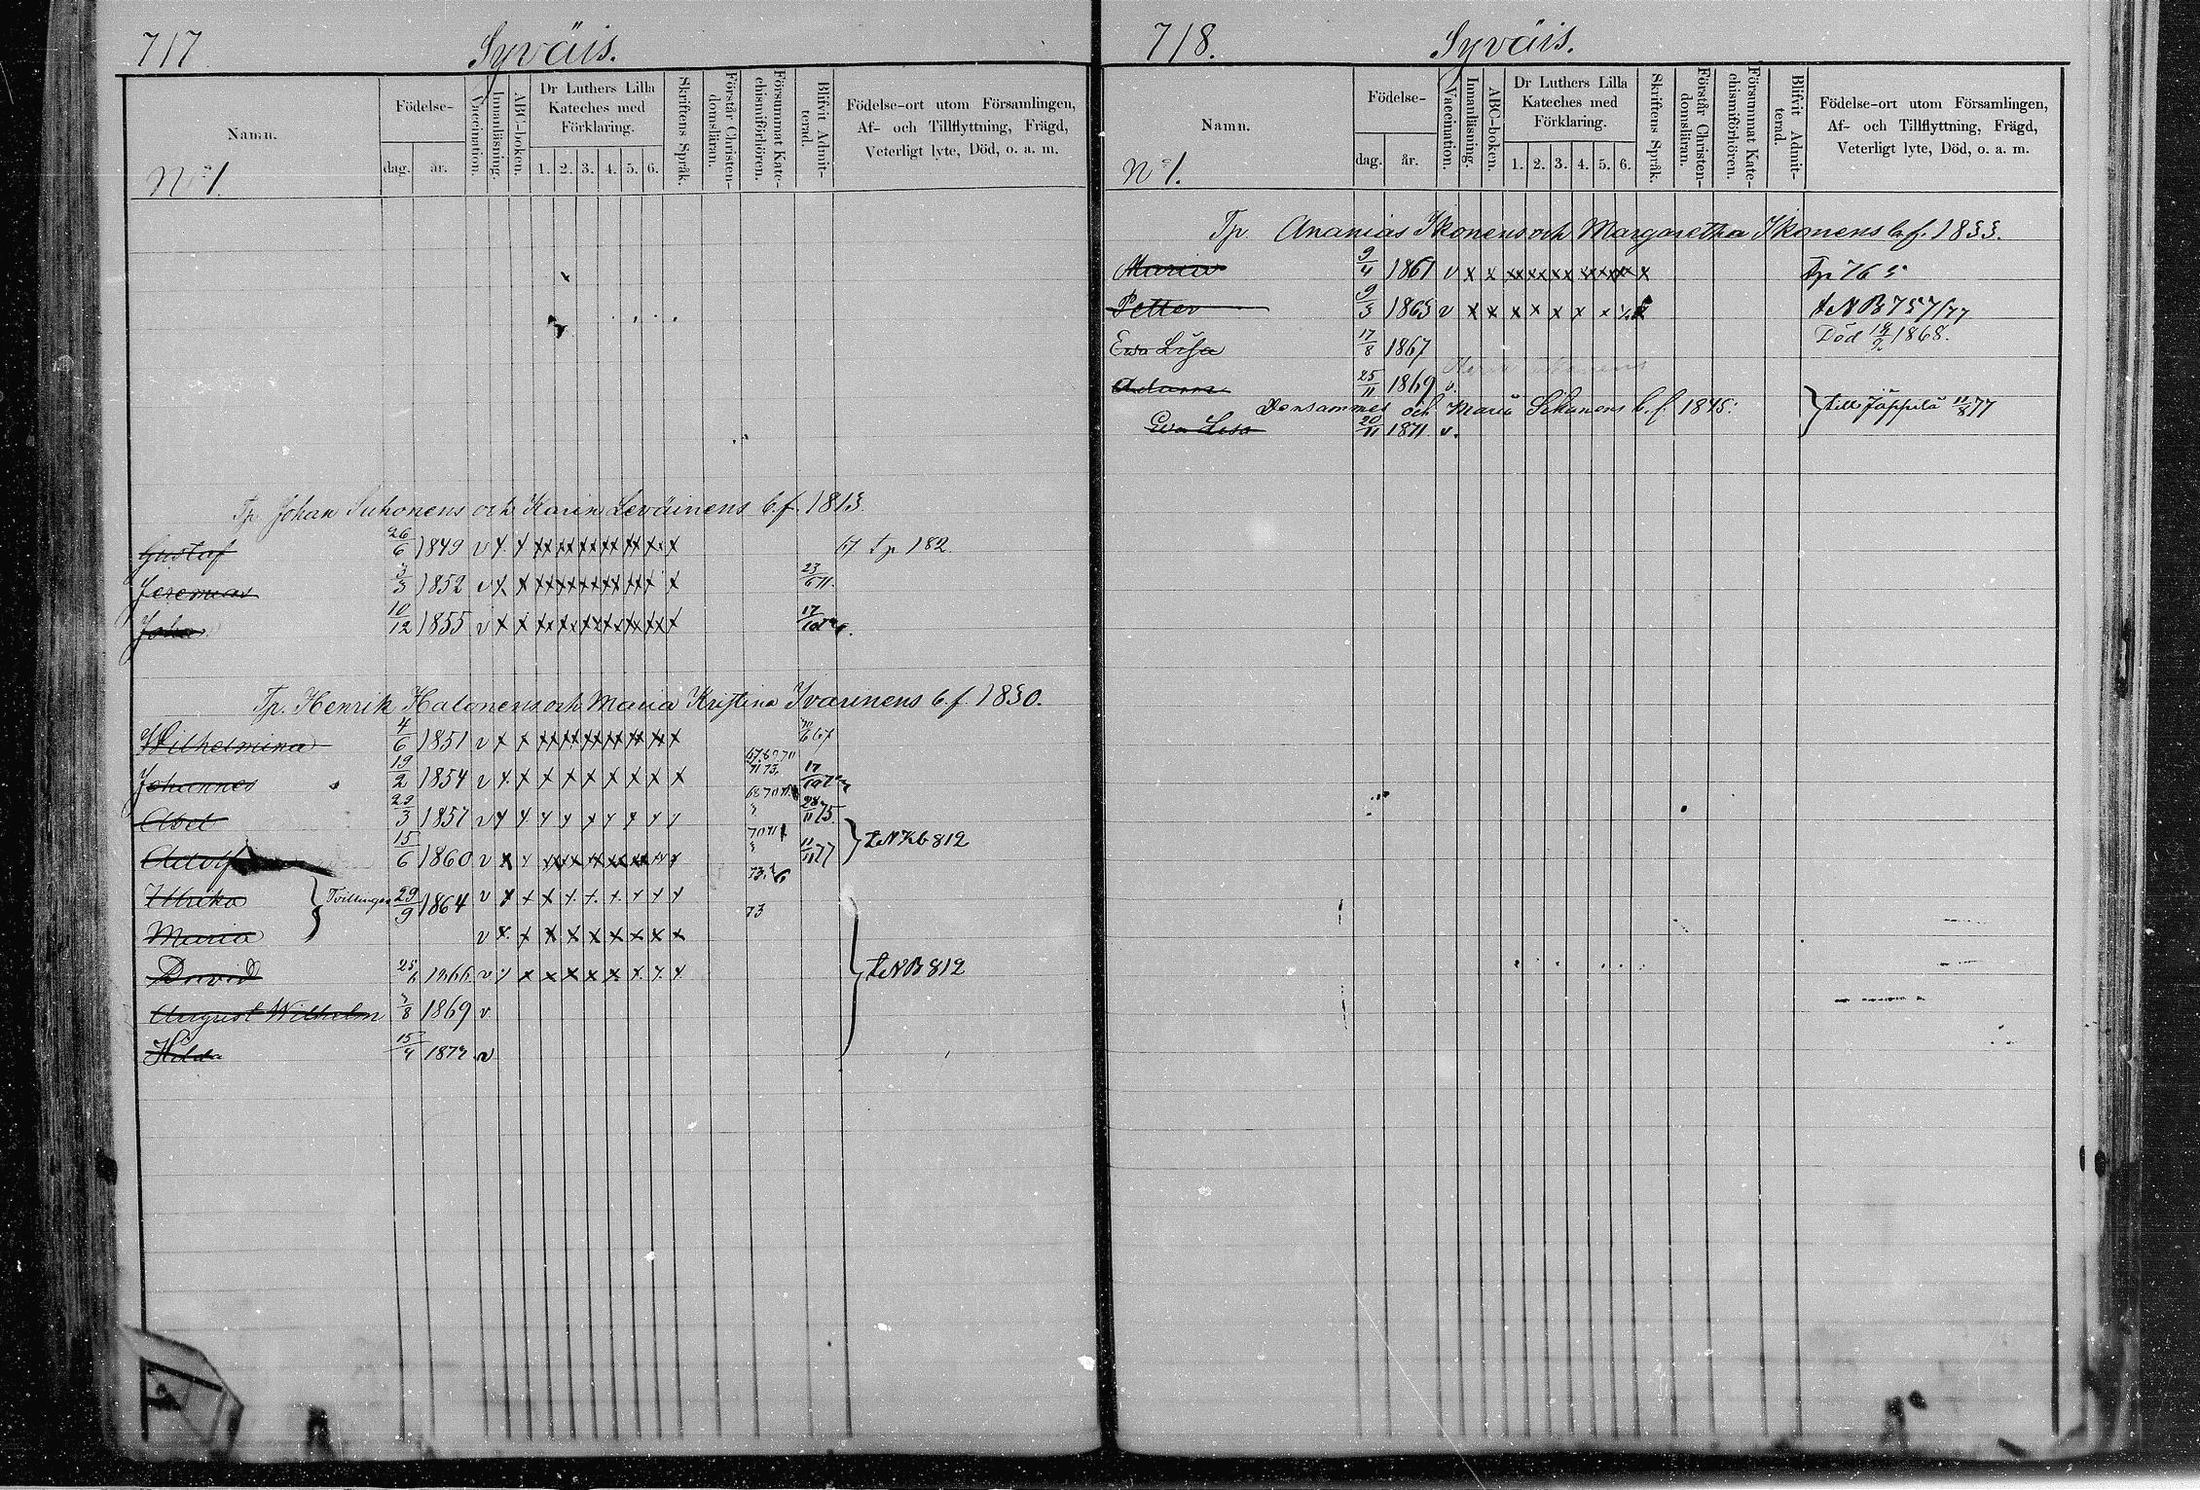 717
Syväis.
Namn.
Födelse-
dag.
år.
Vaccination.
Innanläsning.
ABC-boken.
Dr Luthers Lilla
Kateches med
Förklaring.
1. 2. 3. 4. 5. 6.
Skriftens Språk.
Förstår Christen-
domsläran.
Försummat Kate-
chismiförhören.
Blifvit Admit-
terad.
Födelse-ort utom Församlingen,
Af- och Tillflyttning, Frägd,
Veterligt lyte, Död, o. a. m.
No 1.
Tp. Johan Suhonens och Karin Leväinens b.f. 1813.
Gustaf 26/6 1849 v x x xx xx xx xx xx xx x tp 182.
Jeremias 3/3 1852 v x x xx xx xx xx xx x x 23/6 71.
Johan 10/12 1855 v x x xx xx xx xx xx xx x 17/10
Tp. Henrik Halonens och Maria Kristina Ivarinens b.f. 1830.
Wilhelmina 4/6 1851 v x x xx xx xx xx xx xx x 67
Johannes 19/2 1854 v x x x x x x x x x 71 73. 17/10
Abel 29/3 1857 v x x x x x x x x x 28/11 75.
Adolf 15/6 1860 v x x xx xx xx xx xx xx x 11/11 77 } t. N Kb 812
Ulrika } Tvillingar 29/9 1864 v x x x x x x x x x
Maria v x x x x x x x x x 73
David 25/6 1866 v x x x x x x x x x } t. N B 812
August Wilhelm 3/8 1869 v
Hilda 15/4 1873 v
718.
Syväis.
Namn.
Födelse-
dag.
år.
Vaccination.
Innanläsning.
ABC-boken.
Dr Luthers Lilla
Kateches med
Förklaring.
1. 2. 3. 4. 5. 6.
Skriftens Språk.
Förstår Christen-
domsläran.
Försummat Kate-
chismiförhören.
Blifvit Admit-
terad.
Födelse-ort utom Församlingen,
Af- och Tillflyttning, Frägd,
Veterligt lyte, Död, o. a. m.
No 1.
Tp. Ananias Ikonens och Margaretha Ikonens b.f. 1833.
Maria 9/4 1861 v x x xx xx xx xx xx xx x tp 765
Petter 9/3 1865 v x x x x x x x x t. N B 757/77
Ewa Lisa 17/8 1867 Död 18/2 1868.
Adam 25/11 1869 v.
Densammes och Maria b.f. 1845. } till Jäppilä 11/8 77
Eva Lisa 20/11 1871 v.